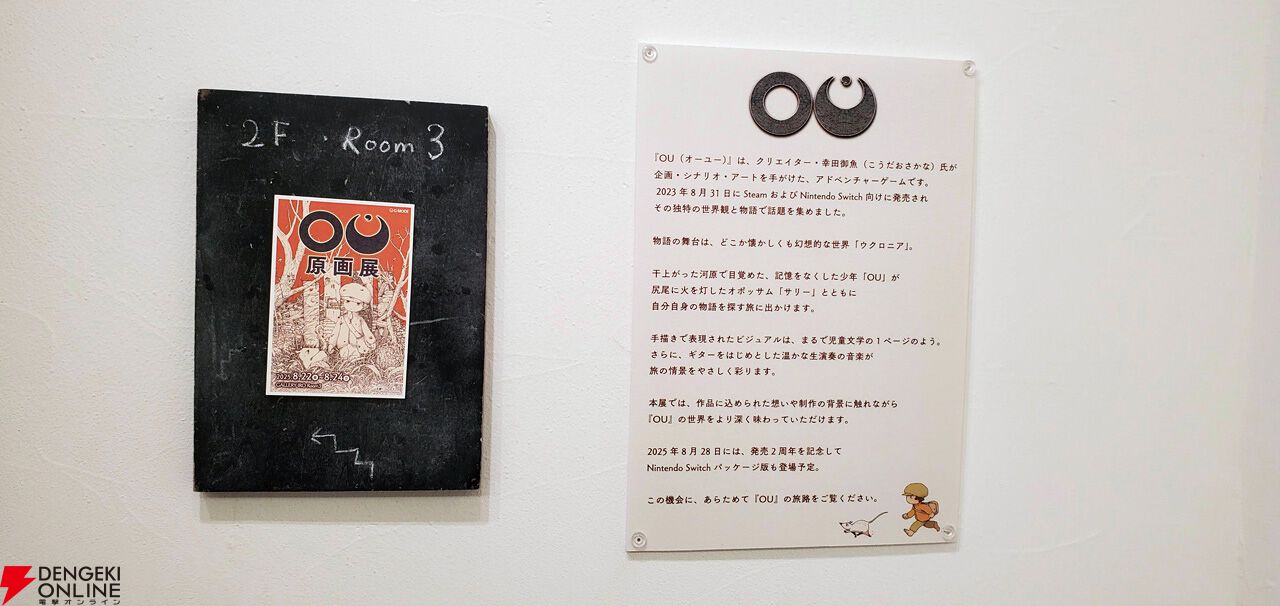 2F・Room 3
©G-MODE
OU
原画展
2025.8.22金-8.24日
OU
『OU（オーユー）』は、クリエイター・幸田御魚（こうだおさかな）氏が
企画・シナリオ・アートを手がけた、アドベンチャーゲームです。
2023年8月31日にSteamおよびNintendo Switch向けに発売され
その独特の世界観と物語で話題を集めました。
物語の舞台は、どこか懐かしくも幻想的な世界「ウクロニア」。
干上がった河原で目覚めた、記憶をなくした少年「OU」が
尻尾に火を灯したオポッサム「サリー」とともに
自分自身の物語を探す旅に出かけます。
手描きで表現されたビジュアルは、まるで児童文学の1ページのよう。
さらに、ギターをはじめとした温かな生演奏の音楽が
旅の情景をやさしく彩ります。
本展では、作品に込められた想いや制作の背景に触れながら
『OU』の世界をより深く味わっていただけます。
2025年8月28日には、発売2周年を記念して
Nintendo Switchパッケージ版も登場予定。
この機会に、あらためて『OU』の旅路をご覧ください。
DENGEKI
ONLINE
電撃オンライン